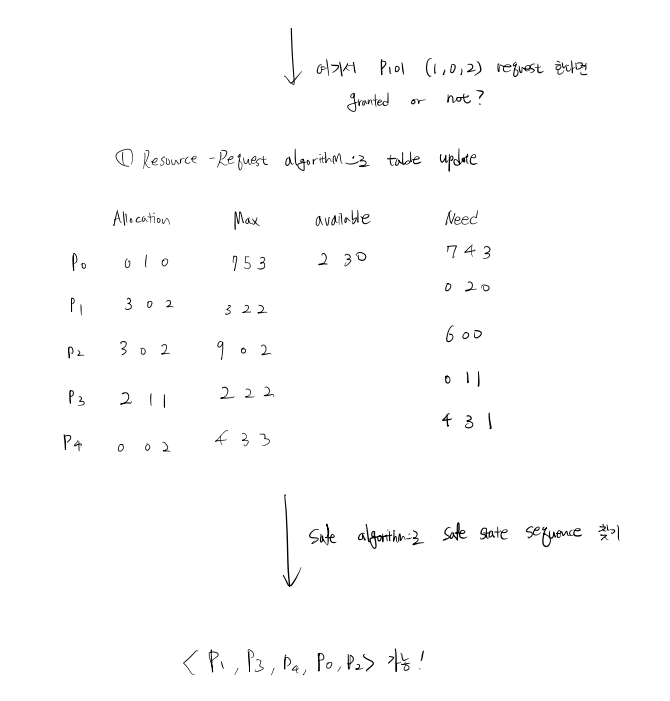 여기서 P1이 (1,0,2) request 한다면
granted or not?
① Resource-Request algorithm으로 table update
Allocation Max available Need
P0 0 1 0 7 5 3 2 3 0 7 4 3
P1 3 0 2 3 2 2 0 2 0
P2 3 0 2 9 0 2 6 0 0
P3 2 1 1 2 2 2 0 1 1
P4 0 0 2 4 3 3 4 3 1
Safe algorithm으로 safe state sequence 찾기
<P1, P3, P4, P0, P2> 가능!